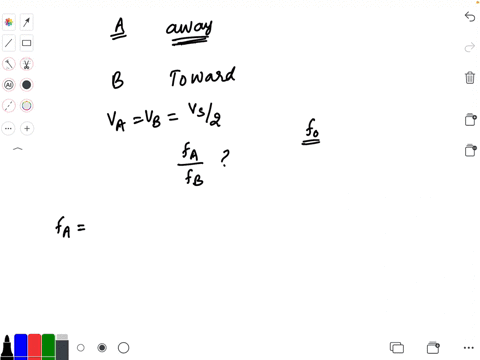 A away
B Toward
V_A = V_B = V_s/2
f_0
f_A/f_B ?
f_A =